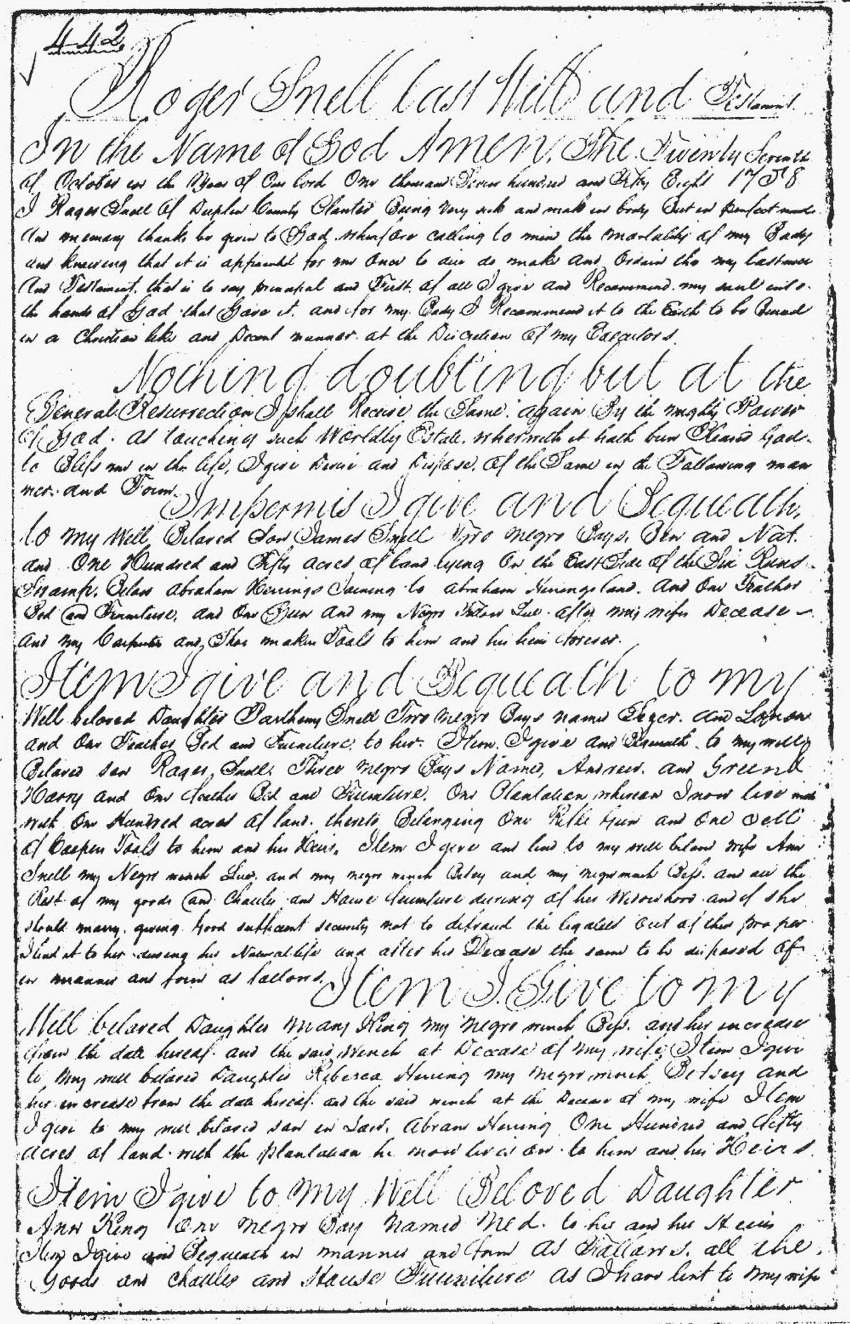 442
Roger Snell Last Will and Testament.
In the Name of God Amen. The Twenty Seventh
of October in the Year of Our lord One thousand Seven hundred and Fifty Eight 1758
I Roger Snell of Duplin County Planter Being very sick and weak in body But in Perfect mind
and memory thanks be given to God, wherefore calling to mind the mortality of my Body
and knowing that it is appointed for me Once to die do make and Ordain this my last will
and Testament, that is to say principal and First of all I give and Recommend my soul into
the hands of God that Gave it. and for my Body I Recommend it to the Earth to be Buried
in a Christian like and Decent manner at the Discretion of my Executors
Nothing doubting but at the
General Resurrection I shall Receive the Same again By the mighty Power
of God. as touching such Worldly Estate, wherewith it hath been Pleased God
to Bless me in this life, I give Devise and Dispose, of the Same in the Following man
ner. and Form.
Impermis I give and Bequeath,
to my Well Beloved Son James Snell Two negro Boys, Ben and Nat.
and One Hundred and Fifty acres of land lying On the East Side of the Six Runs
Swamp, Below Abraham Herrings Joining to Abraham Herrings land. And One Feather
Bed and Furniture, and One Gun and my Negro after my wifes Decease
and my Carpenter and Shoe makers Tools to him and his heirs forever.
Item I give and Bequeath to my
Well beloved Daughter Parthany Snell Two negro Boys named and London
and One Feather Bed and Furniture, to her. Item, I give and Bequeath to my well
Beloved son Roger Snell Three negro Boys Named, Andrew. and Green
Harry and One feather Bed and Furniture, One Plantation whereon I now live
with One Hundred acres of land, thereto Belonging One Gun and One sett
of Coopers Tools to him and his Heirs, Item I give and lend to my well beloved wife Ann
Snell my Negro wench and my negro wench Betsy and my negro wench Bess. and all the
Rest of my goods and Chattles and House furniture during of her Widowhood and if she
should marry, giving Good sufficient security not to defraud the legatees out of their proper
I lend it to her during her Natural life and after her Decease the same to be disposed of
in manner and form as follows.
Item I Give to my
Well beloved Daughter Mary King my negro wench Bess. and her increase
from the date hereof. and the said wench at Decease of my wife, Item I give
to my well beloved Daughter Rebecca Herring my negro wench Betsey and
her increase from the date hereof. and the said wench at the Decease of my wife Item
I give to my well beloved son in Law, Abram Herring One Hundred and fifty
acres of land with the plantation he now lives on to him and his Heirs
Item I give to my Well Beloved Daughter
Ann King One negro Boy named Ned. to her and her Heirs
Item I give and Bequeath in manner and form as Follows, all the
Goods and Chattles and House Furniture as I have lent to my wife